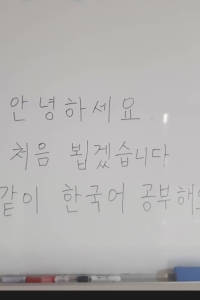 안녕하세요
처음 뵙겠습니다
같이 한국어 공부해요